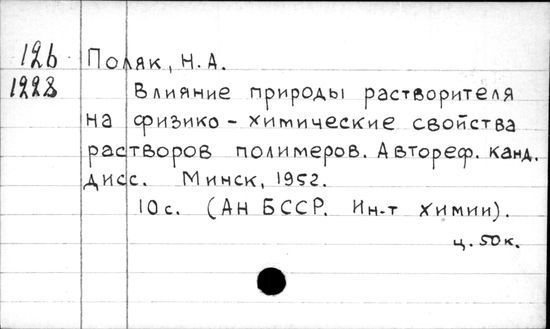 126 Поляк, Н.А.
1228 Влияние природы растворителя
на физико-химические свойства
растворов полимеров. Автореф. канд.
дисс. Минск, 1952.
10с. (АН БССР. Ин-т химии).
ц. 50к.